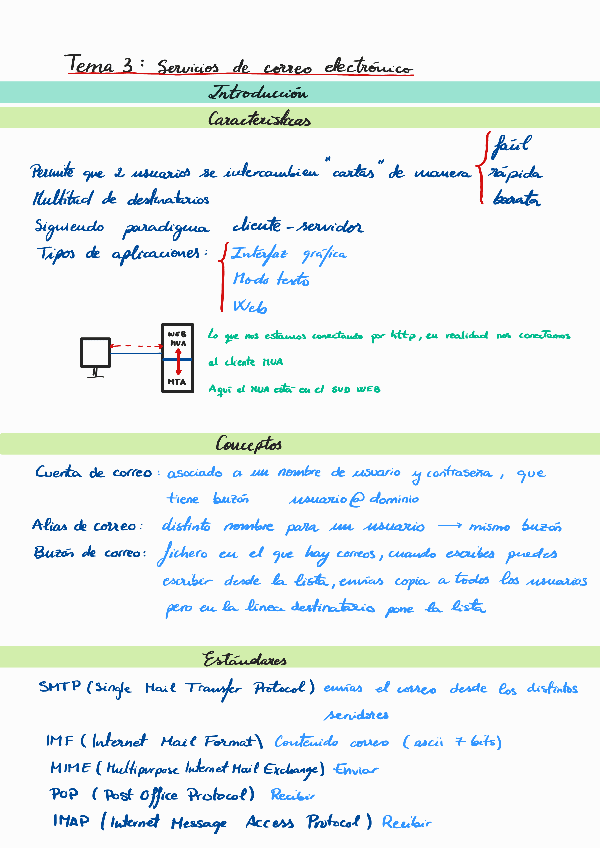 Tema 3: Servicios de correo electrónico
Introducción
Características
Permite que 2 usuarios se intercambien "cartas" de manera
fácil
rápida
barata
Multitud de destinatarios
Siguiendo paradigma cliente-servidor
Tipos de aplicaciones:
Interfaz gráfica
Modo texto
Web
WEB
MUA
MTA
Lo que nos estamos conectando por http, en realidad nos conectamos
al cliente MUA
Aquí el MUA está en el SVD WEB
Conceptos
Cuenta de correo: asociado a un nombre de usuario y contraseña, que
tiene buzón usuario@dominio
Alias de correo: distinto nombre para un usuario → mismo buzón
Buzón de correo: fichero en el que hay correos, cuando escribes puedes
escribir desde la lista, envías copia a todos los usuarios
pero en la línea destinatario pone la lista
Estándares
SMTP (Single Mail Transfer Protocol) envías el correo desde los distintos
servidores
IMF (Internet Mail Format) Contenido correo (ascii 7 bits)
MIME (Multipurpose Internet Mail Exchange) Enviar
POP (Post Office Protocol) Recibir
IMAP (Internet Message Access Protocol) Recibir